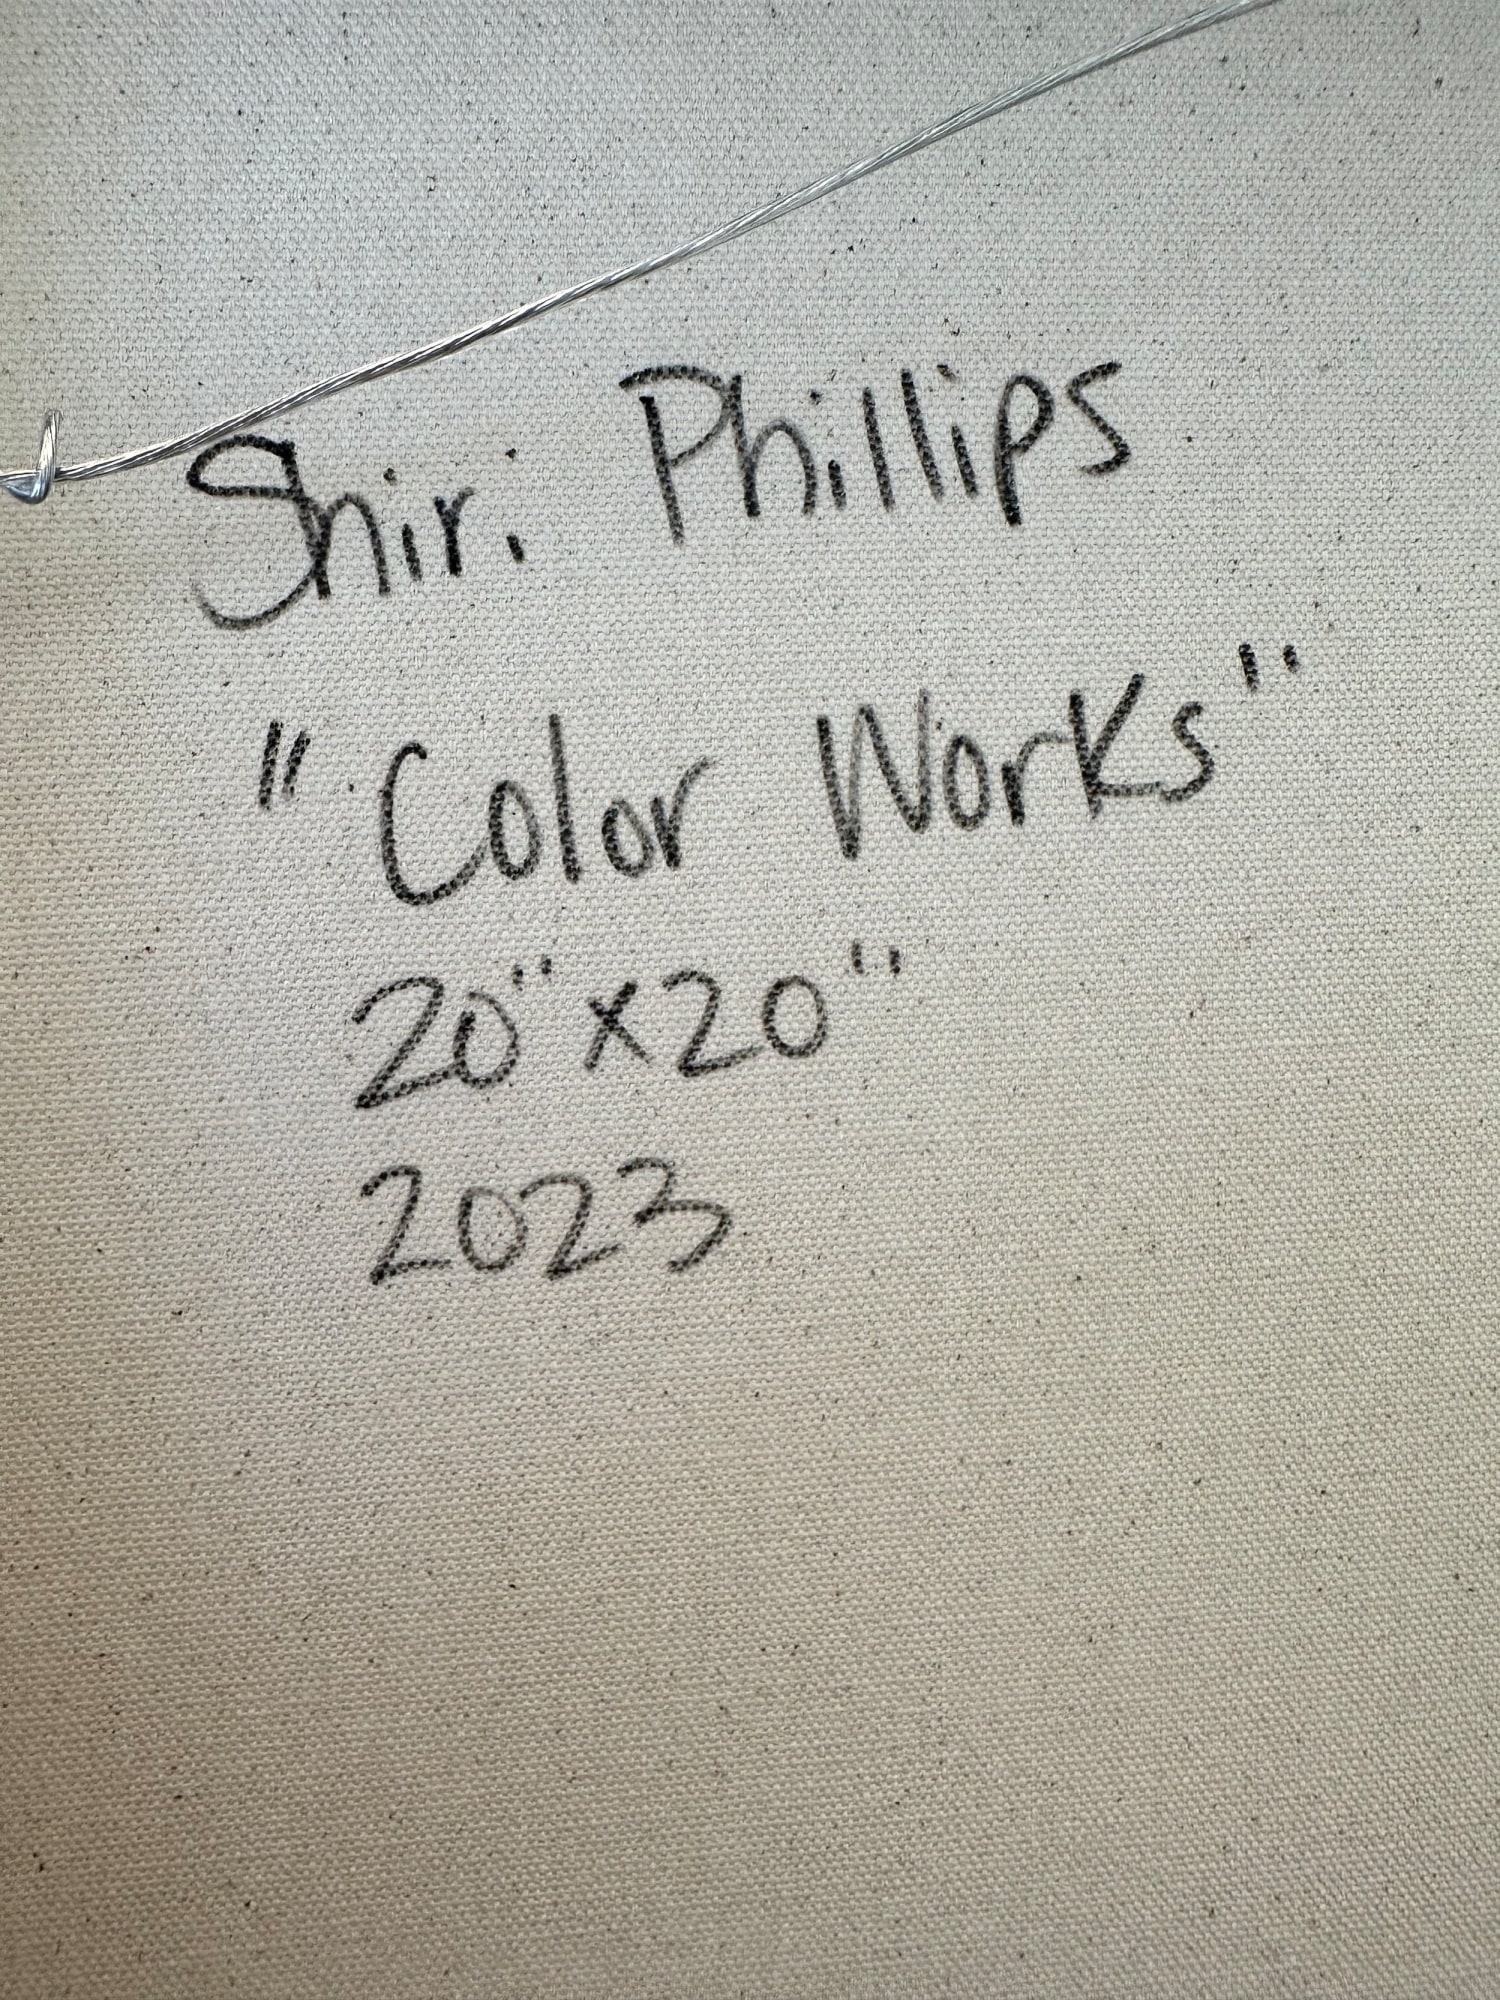 Shiri Phillips
"Color Works"
20"x20"
2023